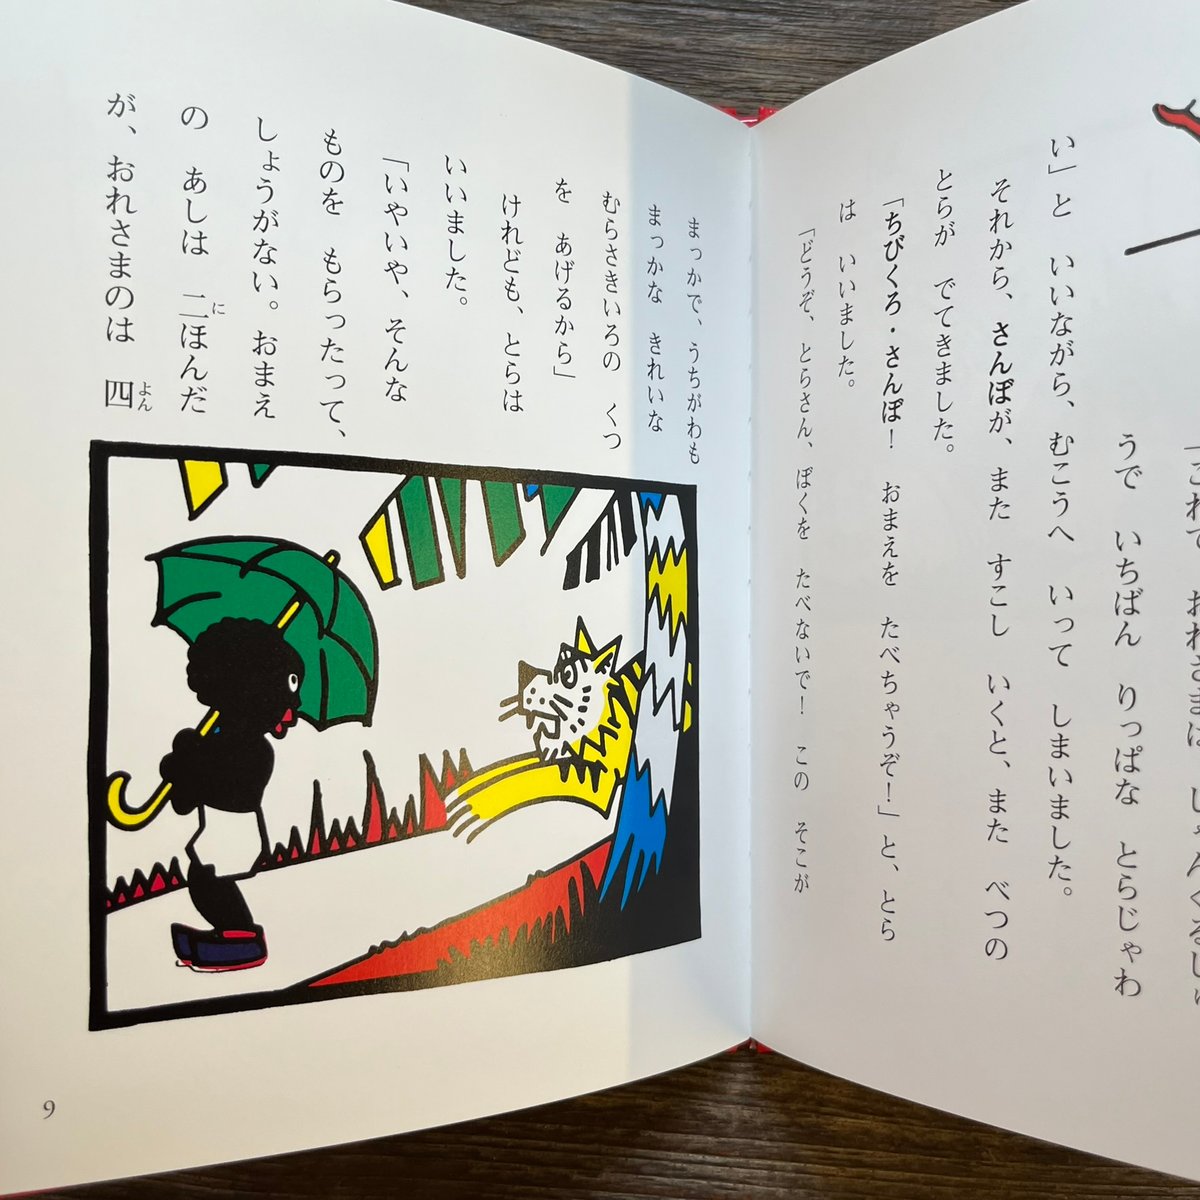 「これで おれさまは、じゃんぐるじゅ
うで いちばん りっぱな とらじゃわ
い」と いいながら、むこうへ いって しまいました。
それから、さんぼが、また すこし いくと、また べつの
とらが でてきました。
「ちびくろ・さんぼ！ おまえを たべちゃうぞ！」と、とら
は いいました。
「どうぞ、とらさん、ぼくを たべないで！ この そこが
まっかで、うちがわも
まっかな きれいな
むらさきいろの くつ
を あげるから」
けれども、とらは
いいました。
「いやいや、そんな
ものを もらったって、
しょうがない。おまえ
の あしは 二ほんだ
が、おれさまのは 四
に
よん
9